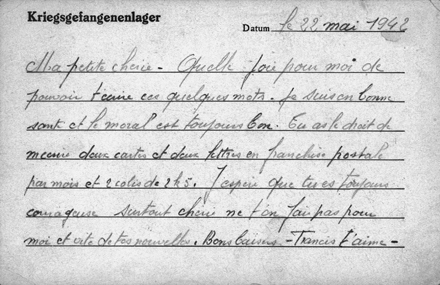 Kriegsgefangenenlager
Datum le 22 mai 1942
Ma petite cherie - Quelle joie pour moi de
pouvoir t'ecrire ces quelques mots. Je suis en bonne
sante et le moral est toujours bon. Tu as le droit de
m'ecrire deux cartes et deux lettres en franchise postale
par mois et 2 colis de 2k5. J'espere que tu es toujours
courageuse surtout cherie ne t'en fais pas pour
moi et vite de tes nouvelles. Bons baisers - Francis t'aime -